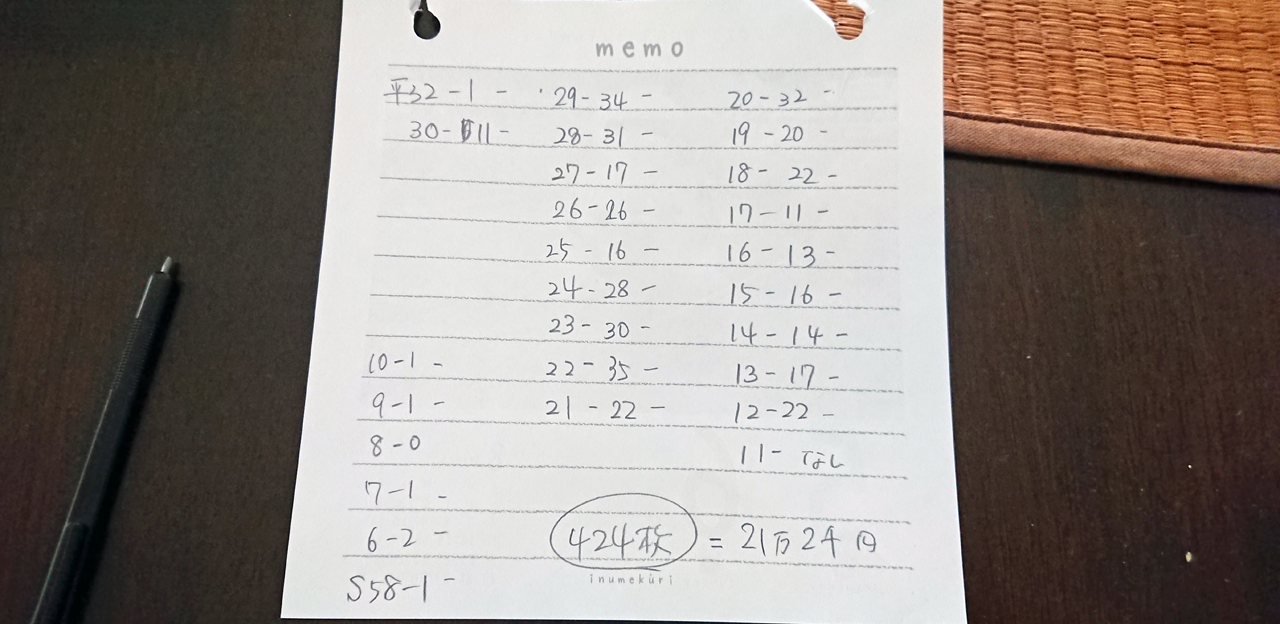 memo
平32-1 - 29-34 - 20-32 -
30-11 - 28-31 - 19-20 -
27-17 - 18-22 -
26-26 - 17-11 -
25-16 - 16-13 -
24-28 - 15-16 -
23-30 - 14-14 -
10-1 - 22-35 - 13-17 -
9-1 - 21-22 - 12-22 -
8-0 11-なし
7-1 -
6-2 - 424枚 = 21万2千円
inumekuri
S58-1 -